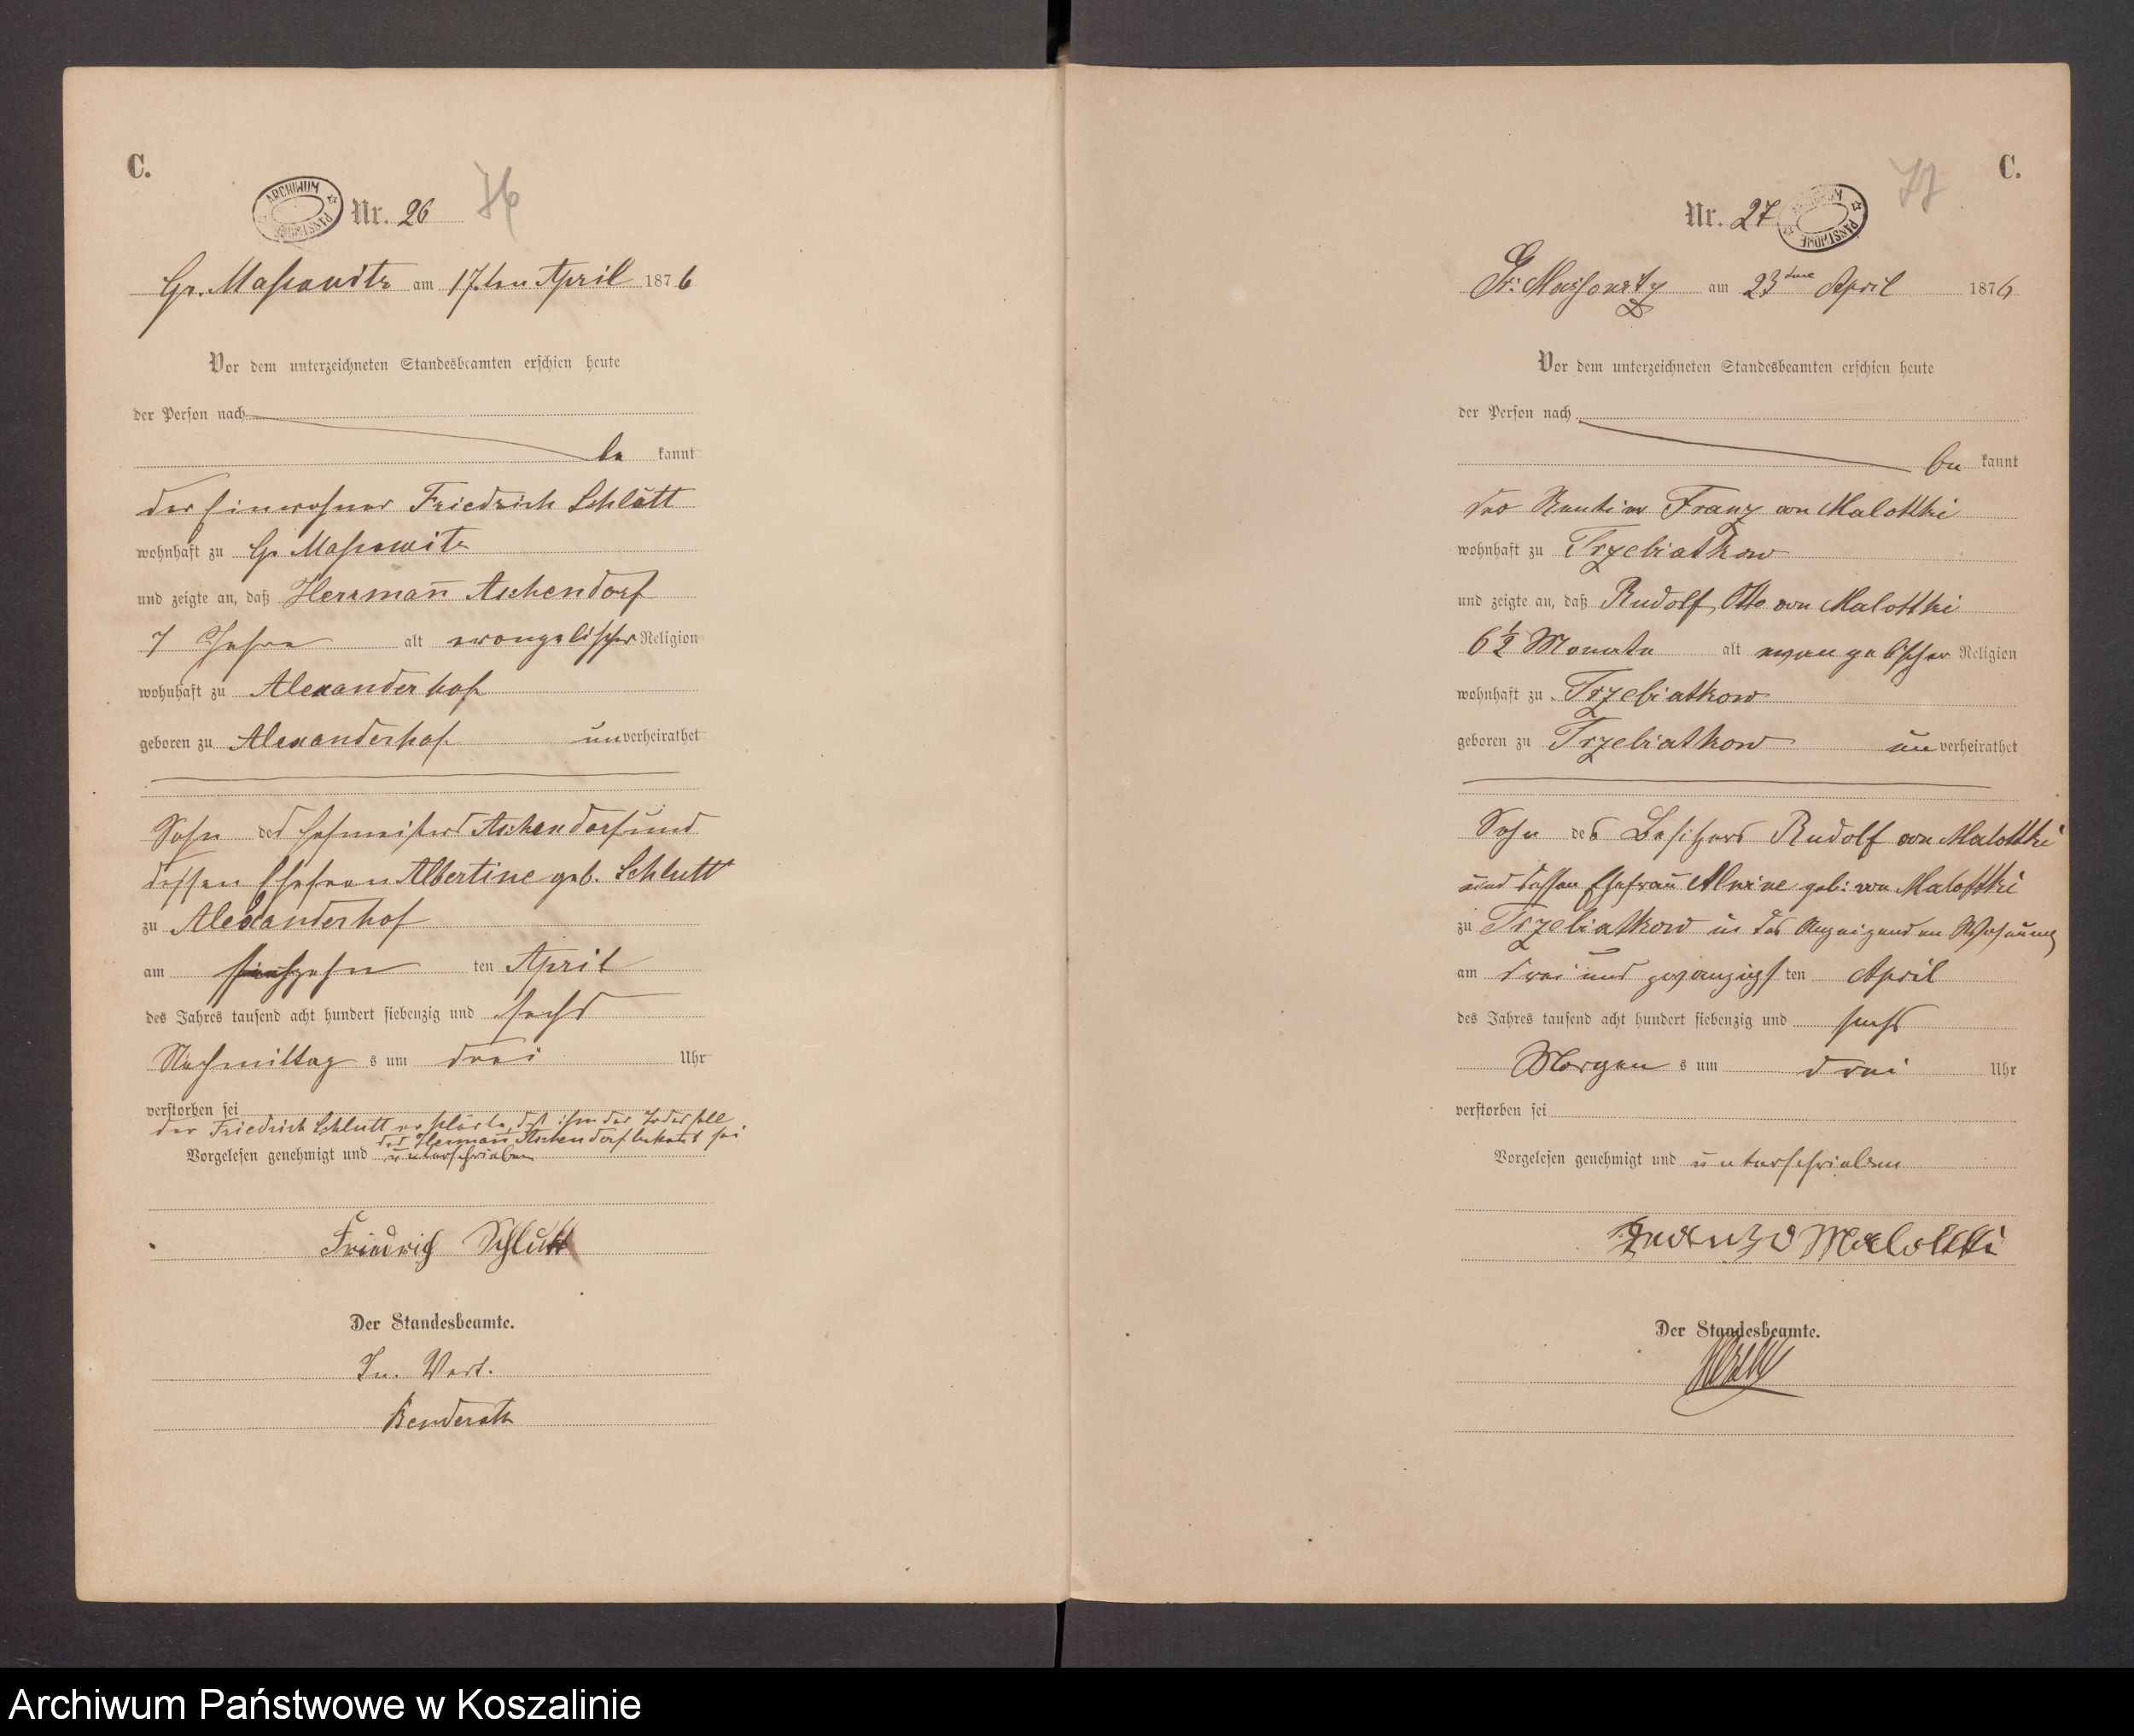 C.
ARCHIWUM PAŃSTWOWE
Nr. 26
76
Gr. Massowitz am 17ten April 1876
Vor dem unterzeichneten Standesbeamten erschien heute
der Person nach
be kannt
der Einwohner Friedrich Schlutt
wohnhaft zu Gr. Massowitz
und zeigte an, daß Herrmann̅ Aschendorf
7 Jahre alt evangelischer Religion
wohnhaft zu Alexanderhof
geboren zu Alexanderhof unverheirathet
Sohn des Hofmeisters Aschendorf und
dessen Ehefrau Albertine geb. Schlutt
zu Alexanderhof
am ten April
des Jahres tausend acht hundert siebenzig und sechs
Nachmittag s um drei Uhr
verstorben sei
der Friedrich Schlutt erklärte, daß ihm der Todesfall
des Hermann̅ Aschendorf bekant sei
Vorgelesen genehmigt und unterschrieben
Friedrich Schlutt
Der Standesbeamte.
In Vert.
Benderoth
C.
77
Nr. 27
ARCHIWUM PAŃSTWOWE
Gr: Massowitz am 23ten April 1876
Vor dem unterzeichneten Standesbeamten erschien heute
der Person nach
be kannt
der Rentier Franz von Malottki
wohnhaft zu Trzebiatkow
und zeigte an, daß Rudolf, Otto von Malottki
6½ Monate alt evangelischer Religion
wohnhaft zu Trzebiatkow
geboren zu Trzebiatkow unverheirathet
Sohn des Besitzers Rudolf von Malottki
und dessen Ehefrau Alwine geb: von Malottki
zu Trzebiatkow in des Anzeigenden Wohnung
am drei und zwanzigsten April
des Jahres tausend acht hundert siebenzig und sechs
Morgen s um drei Uhr
verstorben sei
Vorgelesen genehmigt und unterschrieben
Malottki
Der Standesbeamte.
Archiwum Państwowe w Koszalinie